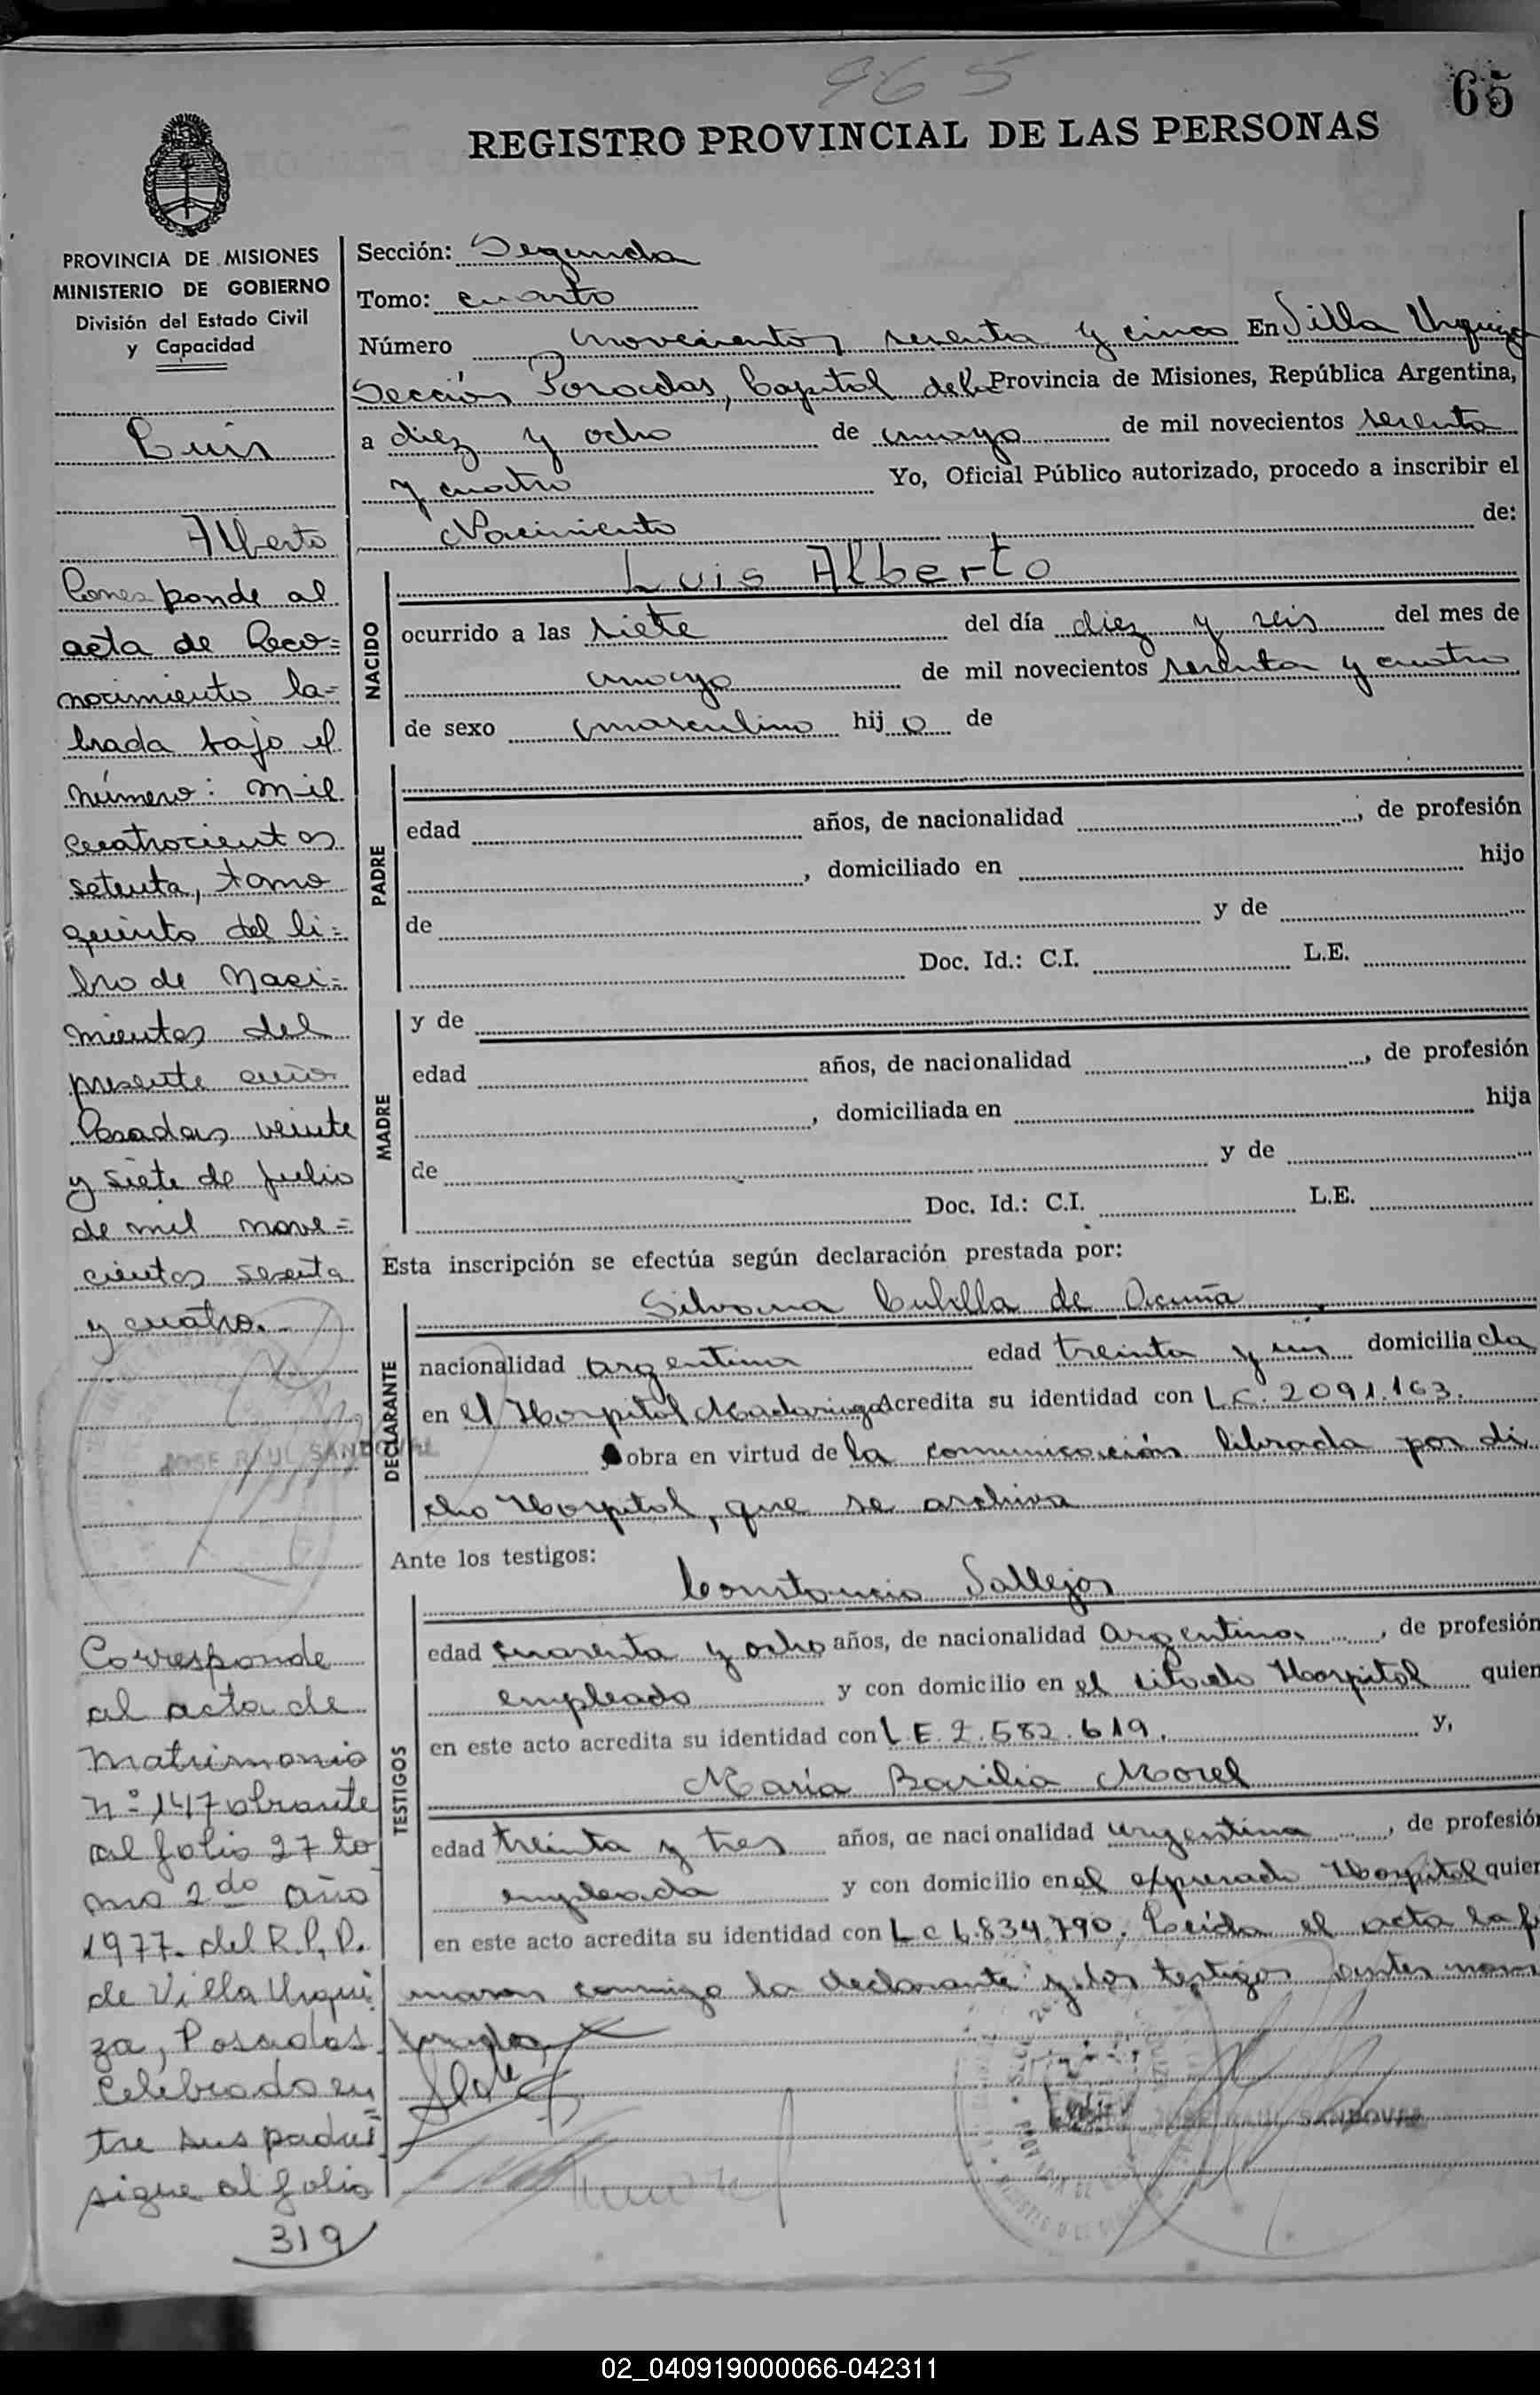 965
65
REGISTRO PROVINCIAL DE LAS PERSONAS
PROVINCIA DE MISIONES
MINISTERIO DE GOBIERNO
División del Estado Civil
y Capacidad
Luis
Alberto
Corresponde al
acta de Reco=
nocimiento la=
brada bajo el
número: mil
cuatrocientos
setenta, tomo
quinto del li=
bro de Naci=
mientos del
presente año
Posadas veinte
y siete de julio
de mil nove=
cientos sesenta
y cuatro.-
JOSE RAUL SANDOVAL
Corresponde
al acta de
Matrimonio
nº 147 obrante
al folio 27 to
mo 2do año
1977. del R.P.P.
de Villa Urqui
za, Posadas
Celebrado en
tre sus padres
sigue al folio
319
Sección: Segunda
Tomo: cuarto
Número novecientos sesenta y cinco En Villa Urquiza
Sección Posadas, Capital de la Provincia de Misiones, República Argentina,
a diez y ocho de mayo de mil novecientos sesenta
y cuatro Yo, Oficial Público autorizado, procedo a inscribir el
Nacimiento de:
NACIDO
Luis Alberto
ocurrido a las siete del día diez y seis del mes de
mayo de mil novecientos sesenta y cuatro
de sexo masculino hijo de
PADRE
edad años, de nacionalidad , de profesión
, domiciliado en hijo
de y de
Doc. Id.: C.I. L.E.
MADRE
y de
edad años, de nacionalidad , de profesión
, domiciliada en hija
de y de
Doc. Id.: C.I. L.E.
Esta inscripción se efectúa según declaración prestada por:
DECLARANTE
Silvana Cubilla de Acuña
nacionalidad argentina edad treinta y un domiciliada
en el Hospital Madariaga Acredita su identidad con L.C. 2091.163.
obra en virtud de la comunicación librada por di
cho Hospital, que se archiva
Ante los testigos:
TESTIGOS
Constancio Vallejos
edad cuarenta y ocho años, de nacionalidad argentino, de profesión
empleado y con domicilio en el citado Hospital quien
en este acto acredita su identidad con L.E. 2.582.619. y,
María Basilia Morel
edad treinta y tres años, de nacionalidad argentina, de profesión
empleada y con domicilio en el expresado Hospital quien
en este acto acredita su identidad con L C 6.834.790. Leída el acta la fir
maron conmigo la declarante y los testigos
JOSE RAUL SANDOVAL
02_040919000066-042311